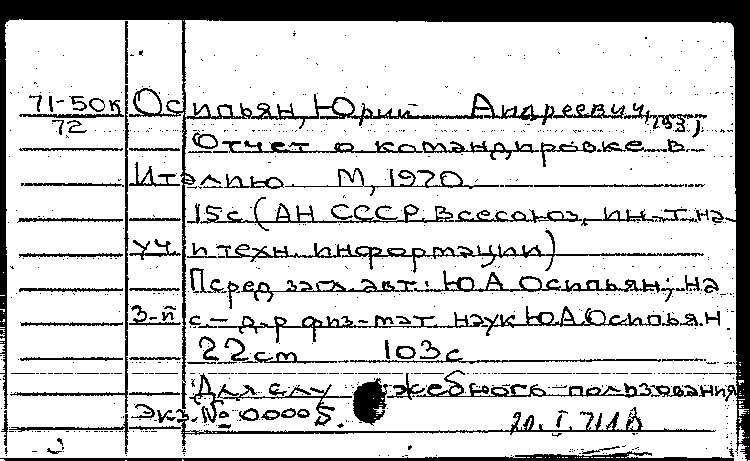 71-50к Осипьян, Юрий Андреевич, 1931
72 Отчет о командировке в
Италию. М, 1970.
15с (АН СССР. Всесоюз. ин-т на-
уч. и техн. информации)
Перед загл. авт.: Ю.А Осипьян; на
3-й с. - д-р физ-мат. наук Ю.А.Осипьян
22см 103с
Для служебного пользования
Экз. № 00005. 20.I.71